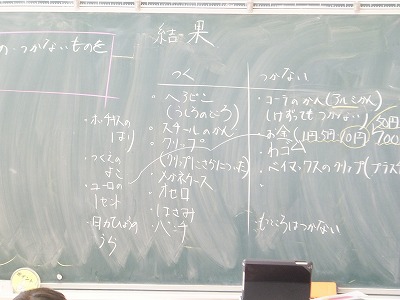 の・つかないものを
結果
つく
つかない
・ホッチキスの
はり
・つくえの
よこ
・ユーロの
1セント
・目がひょうの
うら
・へアピン
(うしろのところ)
・スチールのかん
・クリップ
(クリップにさらについた)
・メガネケース
・オセロ
・はさみ
・ベンチ
・コーラのかん(アルミかん)
けずってもつかない)
・お金(1円5円10円
50円
100
・わゴム
・ベイマックスのクリップ(プラスチ
もつところはつかない